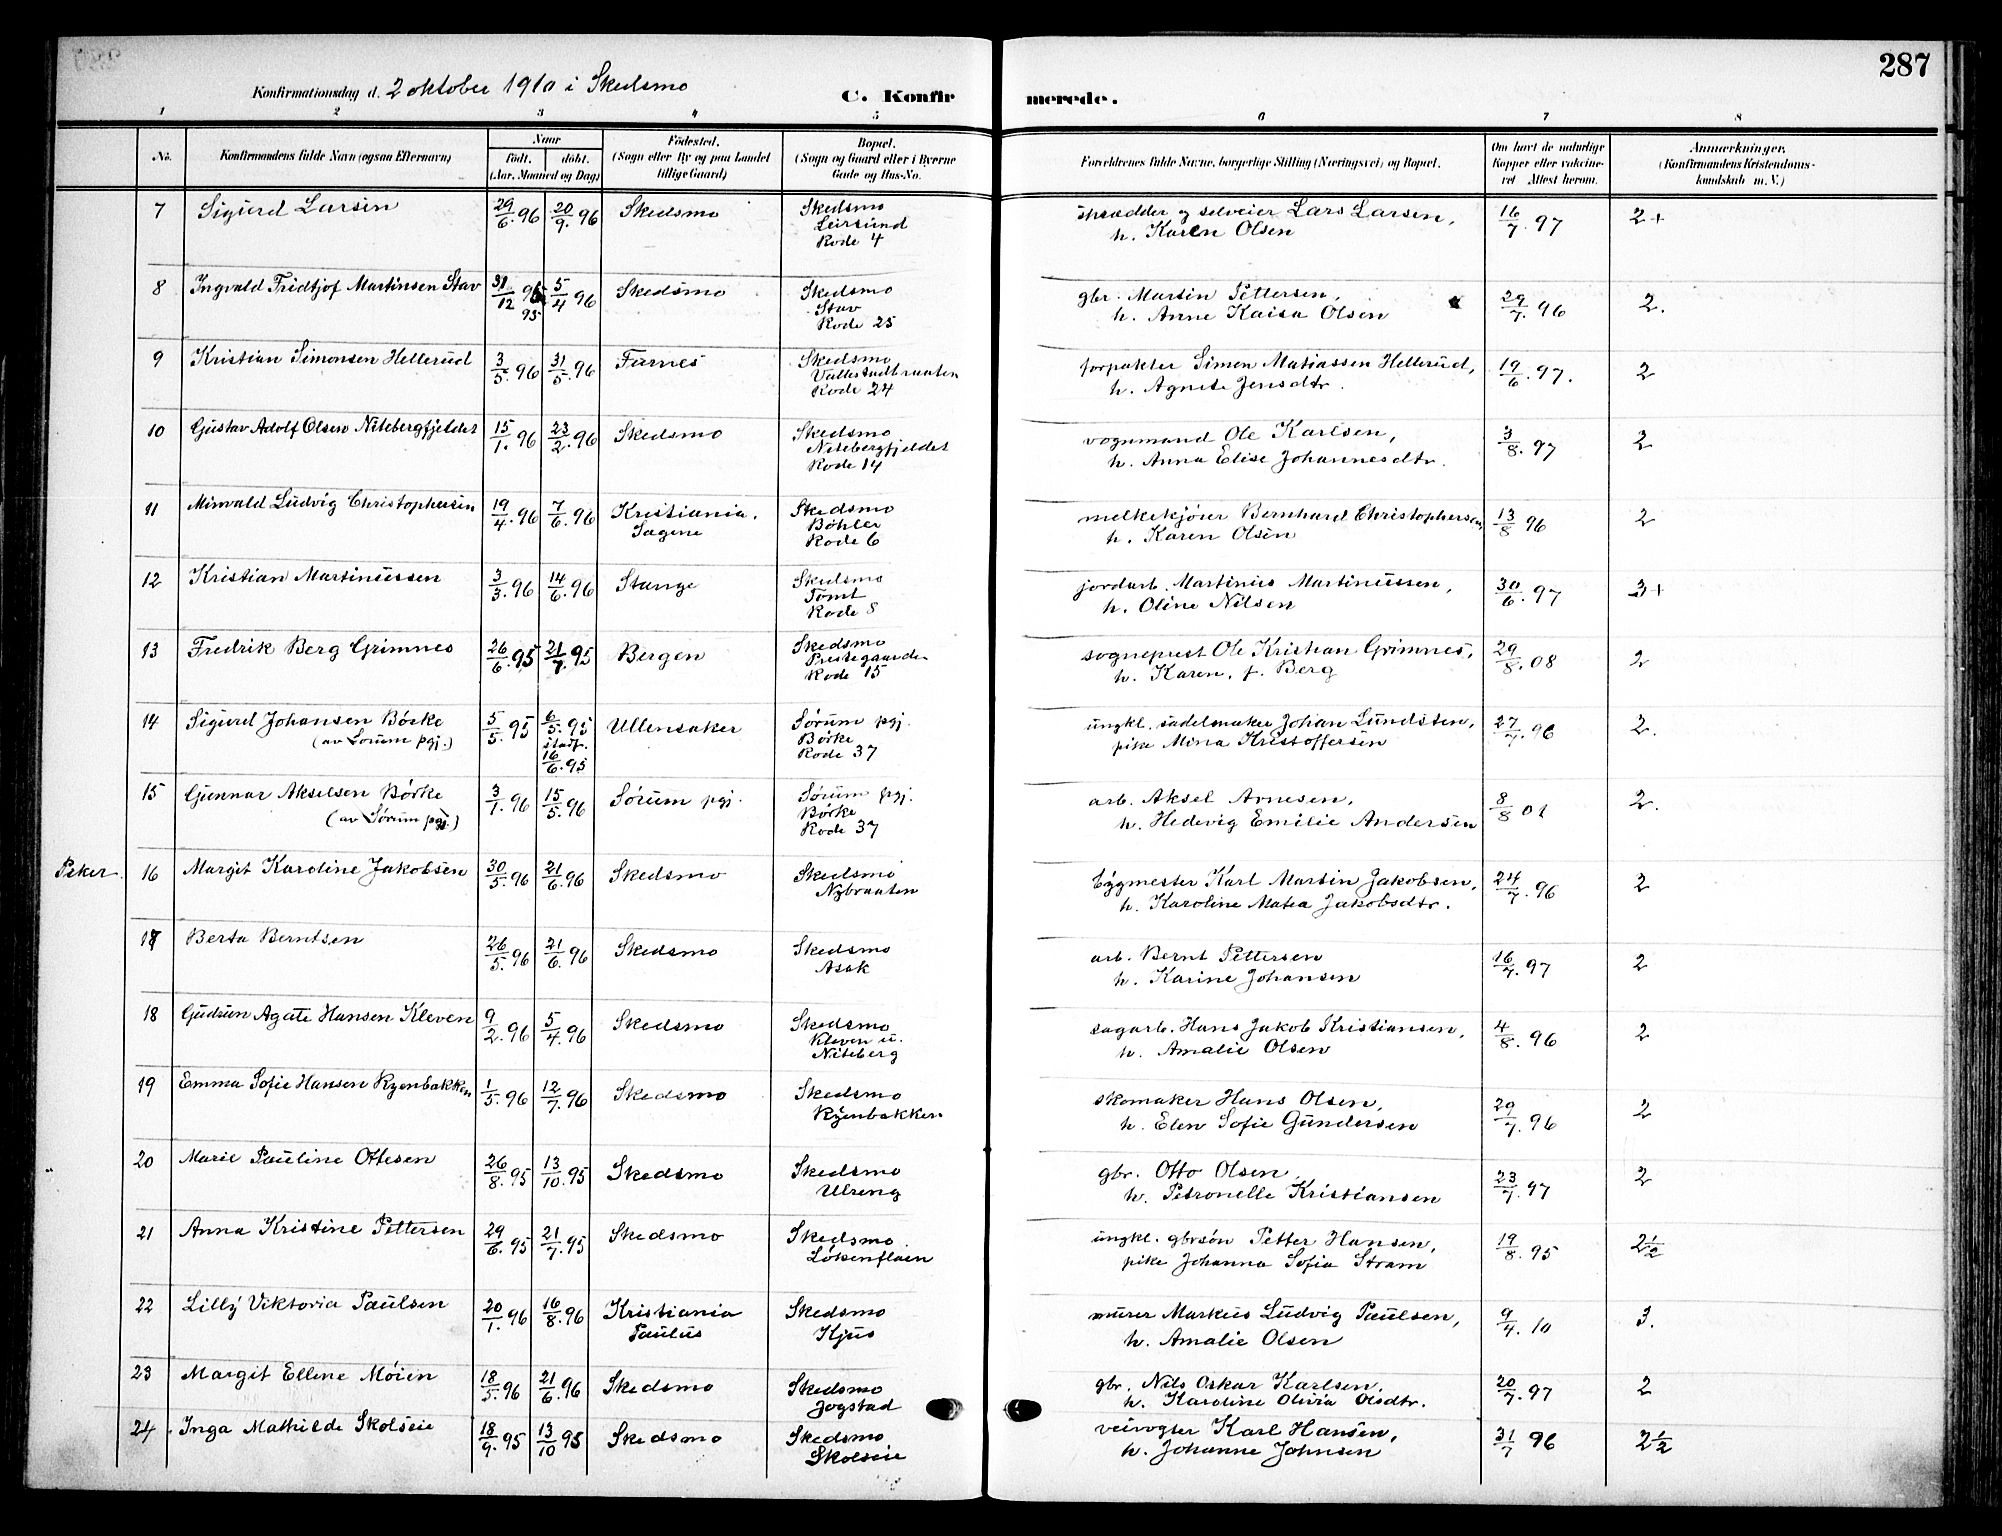 287
Konfirmationsdag d. 2 oktober 1910 i Skedsmo
C. Konfirmerede.
1 2 3 4 5 6 7 8
No. Konfirmandens fulde Navn (ogsaa Efternavn) Naar født. døbt. (Aar, Maaned og Dag) Fødested. (Sogn eller By og paa Landet tillige Gaard) Bopæl. (Sogn og Gaard eller i Byerne Gade og Hus-No. Forældrenes fulde Navne, borgerlige Stilling (Næringsvei) og Bopæl. Om havt de naturlige Kopper eller vaccineret Attest herom. Anmærkninger. (Konfirmandens Kristendomskundskab m. V.)
7 Sigurd Larsen 29/6. 96 20/9. 96 Skedsmo Skedsmo Leirsund Rode 4 skrædder og selveier Lars Larsen, h. Karen Olsen 16/7. 97 2+
8 Ingvald Fridtjof Martinsen Stav 31/12 95 5/4 96 Skedsmo Skedsmo Stav Rode 25 gbr. Martin Pettersen, h. Anne Kaisa Olsen 29/7. 96 2.
9 Kristian Simonsen Hellerud 3/5. 96 31/5. 96 Furnes Skedsmo Vallstadbraaten Rode 24 forpakter Simen Matiassen Hellerud, h. Agnete Jensdtr. 19/6. 97. 2
10 Gustav Adolf Olsen Nitebergfjeldet 15/1. 96 23/2. 96 Skedsmo Skedsmo Nitebergfjeldet Rode 14 vognmand Ole Karlsen, h. Anna Elise Johannesdtr. 3/8. 97 2
11 Minvald Ludvig Christophersen 19/4. 96 7/6. 96 Kristiania. Sagene Skedsmo Böhler Rode 6 melkekjører Bernhard Christophersen, h. Karen Olsen 13/8 96 2
12 Kristian Martinussen 3/3. 96 14/6. 96 Stange Skedsmo Tomt Rode 8 jordarb. Martinus Martinussen, h. Oline Nilsen 30/6. 97 3+
13 Fredrik Berg Grimnes 26/6. 95 21/7. 95 Bergen Skedsmo Prestegaarden Rode 15 sogneprest Ole Kristian Grimnes, h. Karen, f. Berg 29/8. 08 2
14 Sigurd Johansen Börke (av Sorum pgj.) 5/5. 95 6/5. 95 stadf. 16/6. 95 Ullensaker Sórum pgj. Börke Rode 37 ungkl. sadelmaker Johan Lundsten, pike Mina Kristoffersen 27/7. 96 2.
15 Gunnar Akselsen Börke (av Sórum pgj.) 3/1. 96 15/5. 96 Sórum pgj. Sórum pgj. Börke Rode 37 arb. Aksel Arnesen, h. Hedevig Emilie Andersen 8/8 01 2.
Piker. 16 Margit Karoline Jakobsen 30/5. 96 21/6. 96 Skedsmo Skedsmo Nybraaten bygmester Karl Martin Jakobsen, h. Karoline Matea Jakobsdtr. 24/7. 96 2
17 Berta Berntsen 26/5. 96 21/6. 96 Skedsmo Skedsmo Asak arb. Bernt Pettersen h. Karine Johansen 16/7. 97 2
18 Gudrun Agate Hansen Kleven 9/2. 96 5/4. 96 Skedsmo Skedsmo Kleven u. Niteberg sagarb. Hans Jakob Kristiansen, h. Amalie Olsen 4/8. 96 2
19 Emma Sofie Hansen Ryenbakken 1/5. 96 12/7. 96 Skedsmo Skedsmo Ryenbakken skomaker Hans Olsen, h. Elen Sofie Gundersen 29/7. 96 2
20 Marie Pauline Ottesen 26/8. 95 13/10. 95 Skedsmo Skedsmo Ulreng gbr. Otto Olsen, h. Petronelle Kristiansen 23/7. 97 2
21 Anna Kristine Pettersen 29/6. 95 21/7. 95 Skedsmo Skedsmo Lökenflaen ungkl. gbrsön Petter Hansen, pike Johanna Sofia Stram 19/8. 95 2½
22 Lilly Viktoria Paulsen 20/1. 96 16/8. 96 Kristiania Paulus Skedsmo Kjus murer Markus Ludvig Paulsen, h. Amalie Olsen 9/4. 10 3.
23 Margit Ellene Moien 18/5. 96 21/6. 96 Skedsmo Skedsmo Jogstad gbr. Nils Oskar Karlsen, h. Karoline Olivia Olsdtr. 20/7. 97 2
24 Inga Mathilde Skolseie 18/9. 95 13/10 95 Skedsmo Skedsmo Skolseie veivogter Karl Hansen, h. Johanne Johnsen 31/7 96 2½